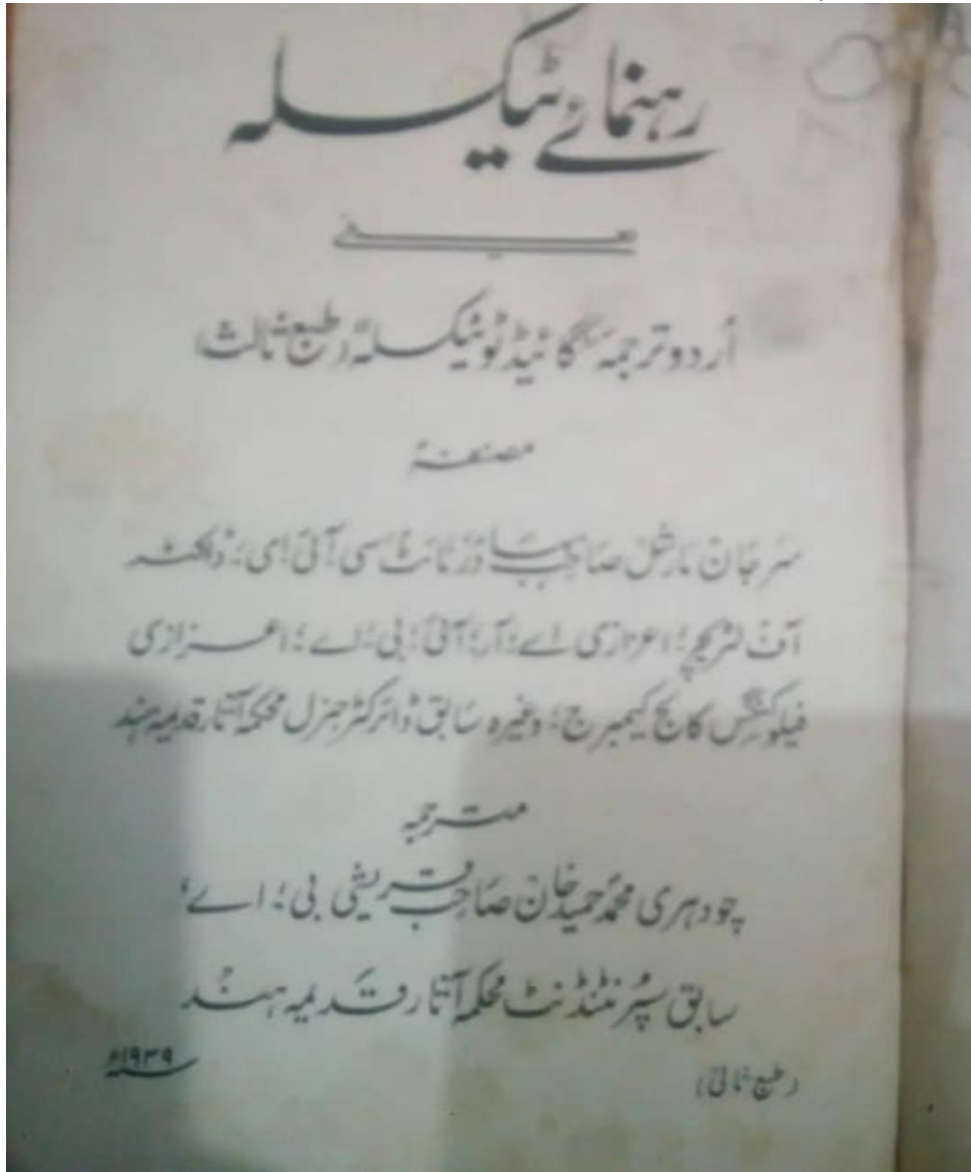 رہنمائے ٹیکسلہ
یعنی
اُردو ترجمہ گائیڈ ٹو ٹیکسلہ (طبع ثالث)
مصنفہ
سر جان مارشل صاحب بہادر نائٹ سی آئی ای؛ ڈاکٹر
آف لٹریچر؛ اعزازی اے؛ آر؛ آئی؛ بی؛ اے؛ اعزازی
فیلو کنگس کالج کیمبرج؛ وغیرہ سابق ڈائرکٹر جنرل محکمہ آثار قدیمہ ہند
مترجمہ
چودہری محمد حمید خان صاحب قریشی بی؛ اے؛
سابق سپرنٹنڈنٹ محکمہ آثار قدیمہ ہند
(طبع ثانی) ۱۹۳۹ء